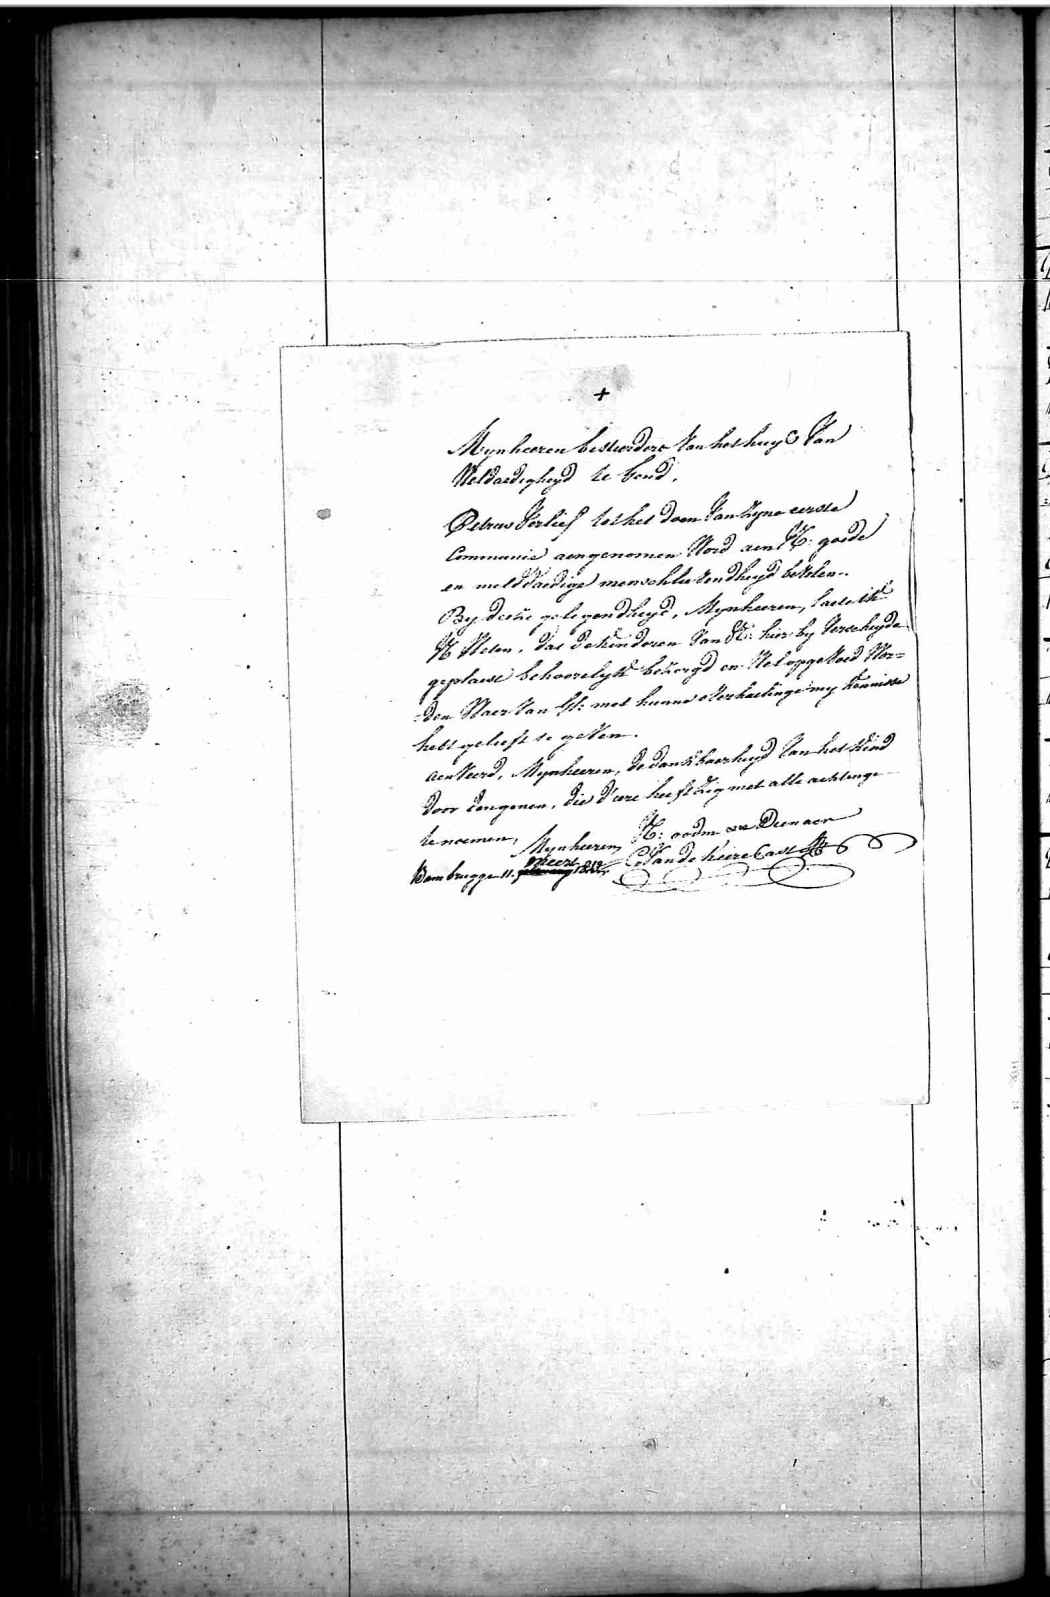 +
Mynheeren bestierders van het huys van
Weldaedigheyd te Gend,
Petrus Verlief tot het doen van zyne eerste
Communie aengenomen word aen U: goede
en weldaedige menschlievendheyd bevolen.
By deeze gelegendheyd, Mynheeren, laete ik
U weten, dat de kinderen van U: hier by verscheyde
geplaest behoorelyk bezorgd en wel opgevoed wor=
=den waer van gl: met hunne verhaelinge my kennisse
hebt gelieft te geven.
aenveerd, Mynheeren, de dankbaerheyd van het kind
door dengenen, die d'eere heeft zig met alle achtinge
te noemen,
Mynheeren
U: oodm en Dienaer
Bambrugge 11. meert
C. Van de keere Past